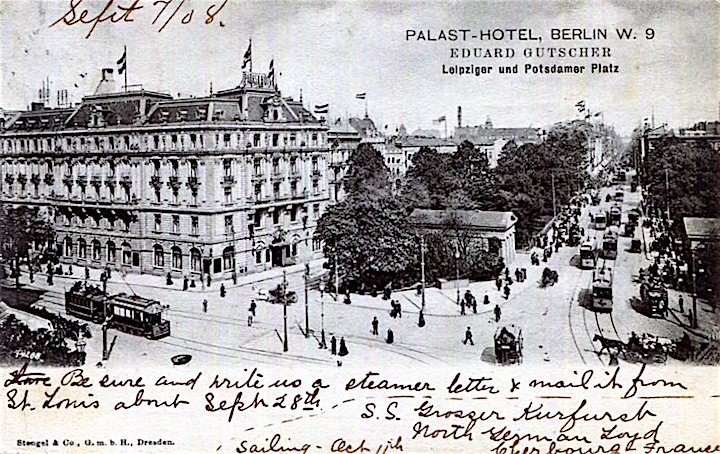 Sept 7/08.
PALAST-HOTEL, BERLIN W. 9
EDUARD GUTSCHER
Leipziger und Potsdamer Platz
Be sure and write us a steamer letter & mail it from
St. Louis about Sept 28th
S.S. Grosser Kurfurst
North German Loyd
Sailing - Oct 11th
Cherbourg - France
Stengel & Co., G. m. b. H., Dresden.